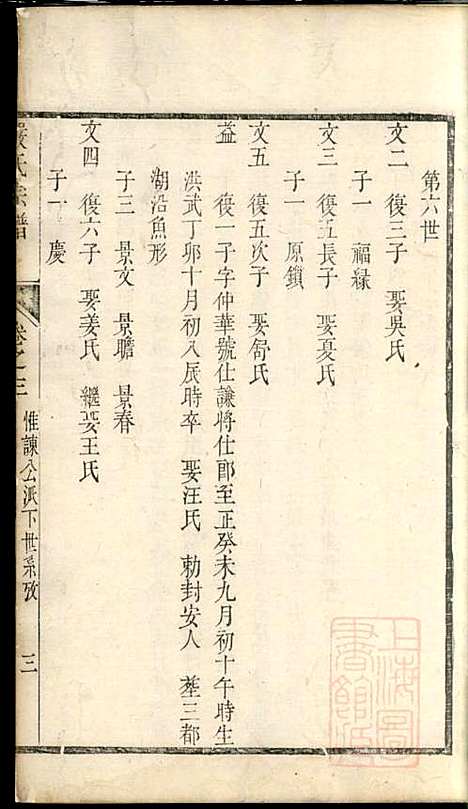 第六世
文二　復三子　娶吳氏
子一　福緣
文三　復五長子　娶夏氏
子一　原鎖
文五　復五次子　娶舒氏
益　復一子字仲華號仕謙將仕郎至正癸未九月初十午時生
洪武丁卯十月初八辰時卒　娶汪氏　勅封安人　塟三都
湖沿魚形
子三　景文　景瞻　景春
文四　復六子　娶姜氏　繼娶王氏
子一　慶
氏宗譜　卷之三　惟諫公派下世系攷　三
上海圖書館藏